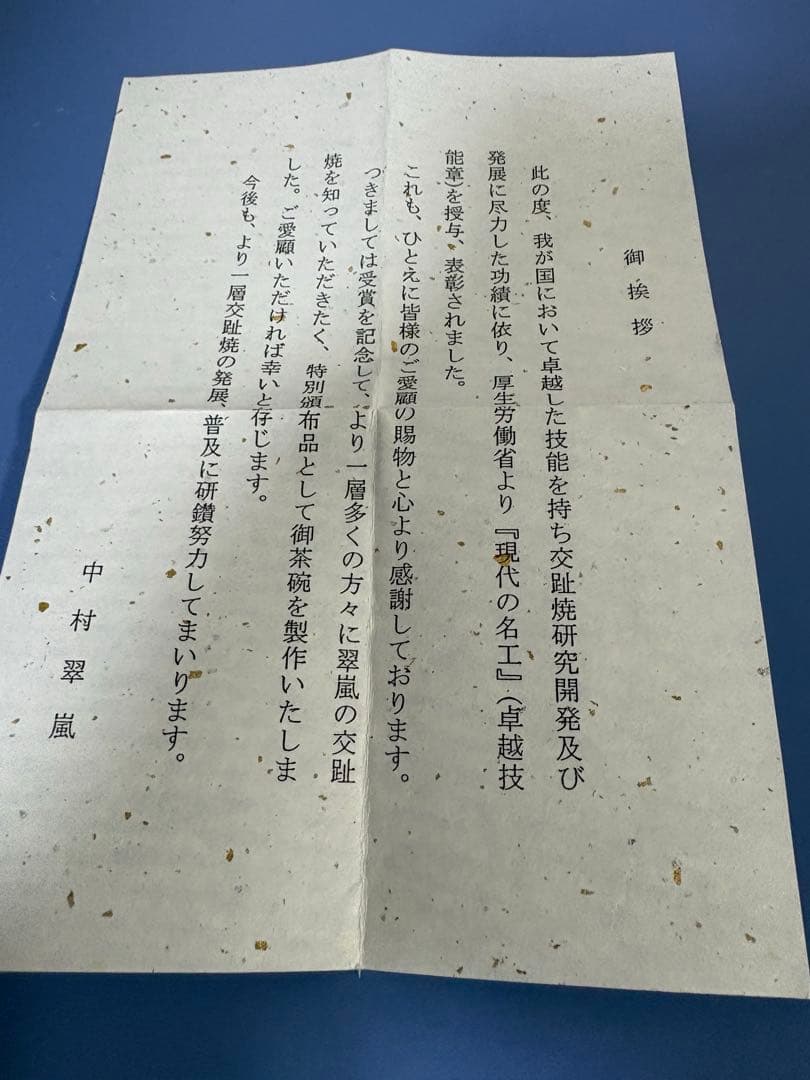 御挨拶
此の度、我が国において卓越した技能を持ち交趾焼研究開発及び
発展に尽力した功績に依り、厚生労働省より『現代の名工』(卓越技
能章)を授与、表彰されました。
これも、ひとえに皆様のご愛顧の賜物と心より感謝しております。
つきましては受賞を記念して、より一層多くの方々に翠嵐の交趾
焼を知っていただきたく、特別頒布品として御茶碗を製作いたしま
した。ご愛顧いただければ幸いと存じます。
今後も、より一層交趾焼の発展、普及に研鑽努力してまいります。
中村翠嵐